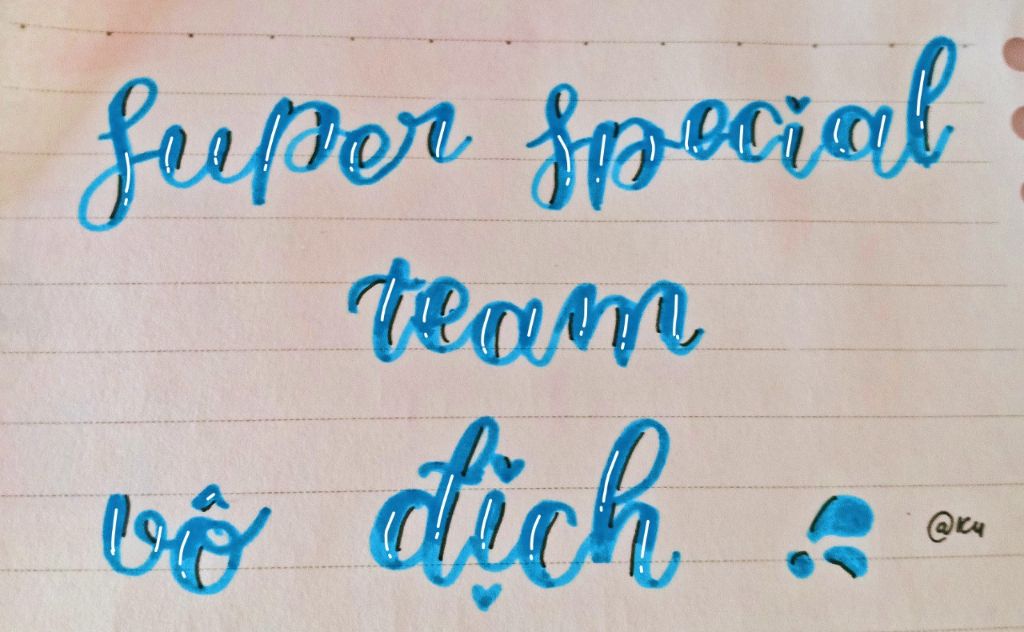 super special
team
vô địch
@Ku